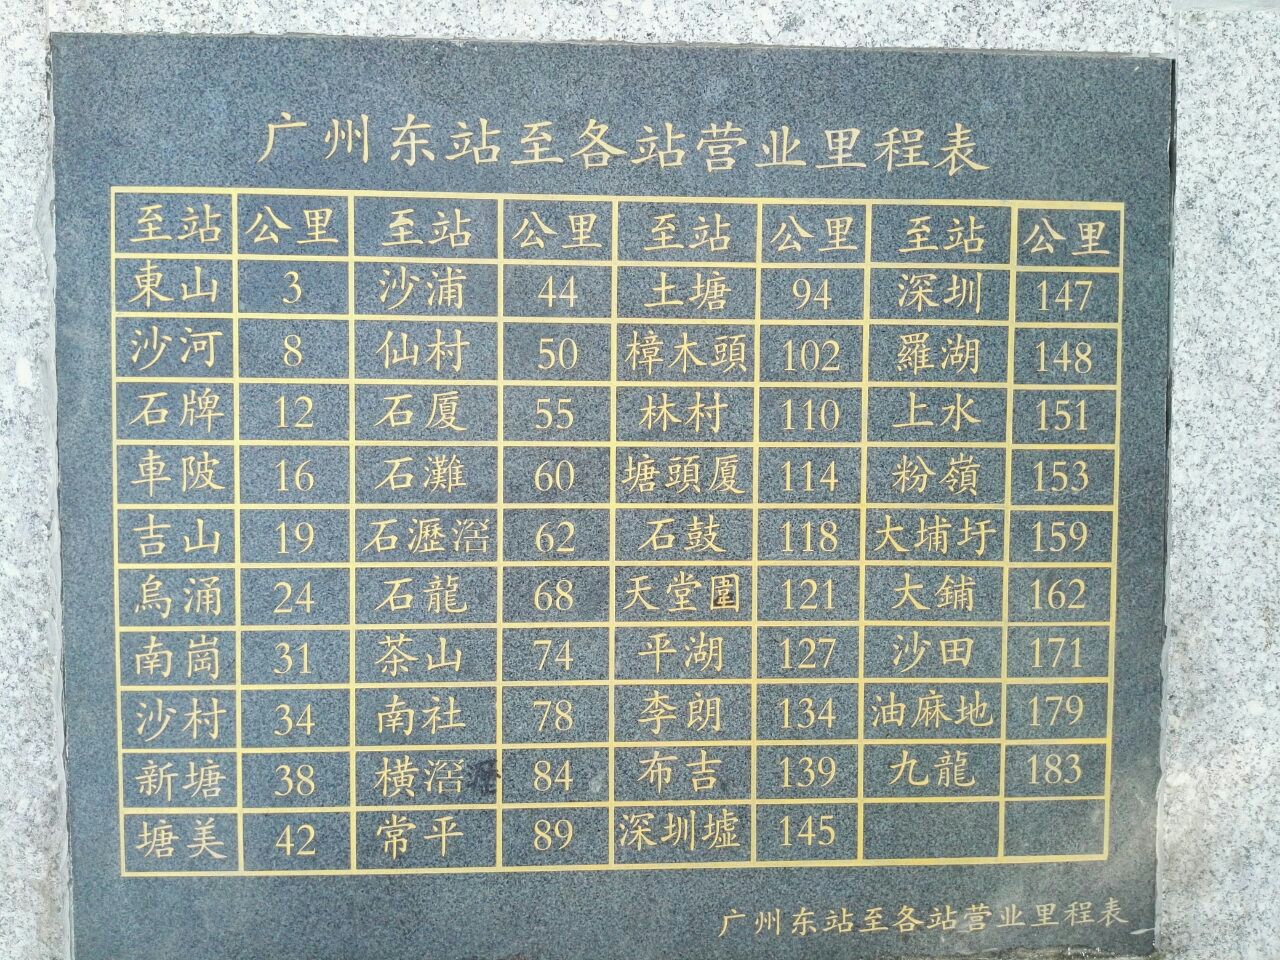 广州东站至各站营业里程表
至站 公里 至站 公里 至站 公里 至站 公里
東山 3 沙浦 44 土塘 94 深圳 147
沙河 8 仙村 50 樟木頭 102 羅湖 148
石牌 12 石厦 55 林村 110 上水 151
車陂 16 石灘 60 塘頭厦 114 粉嶺 153
吉山 19 石瀝滘 62 石鼓 118 大埔圩 159
烏涌 24 石龍 68 天堂圍 121 大鋪 162
南崗 31 茶山 74 平湖 127 沙田 171
沙村 34 南社 78 李朗 134 油麻地 179
新塘 38 橫滘 84 布吉 139 九龍 183
塘美 42 常平 89 深圳墟 145
广州东站至各站营业里程表